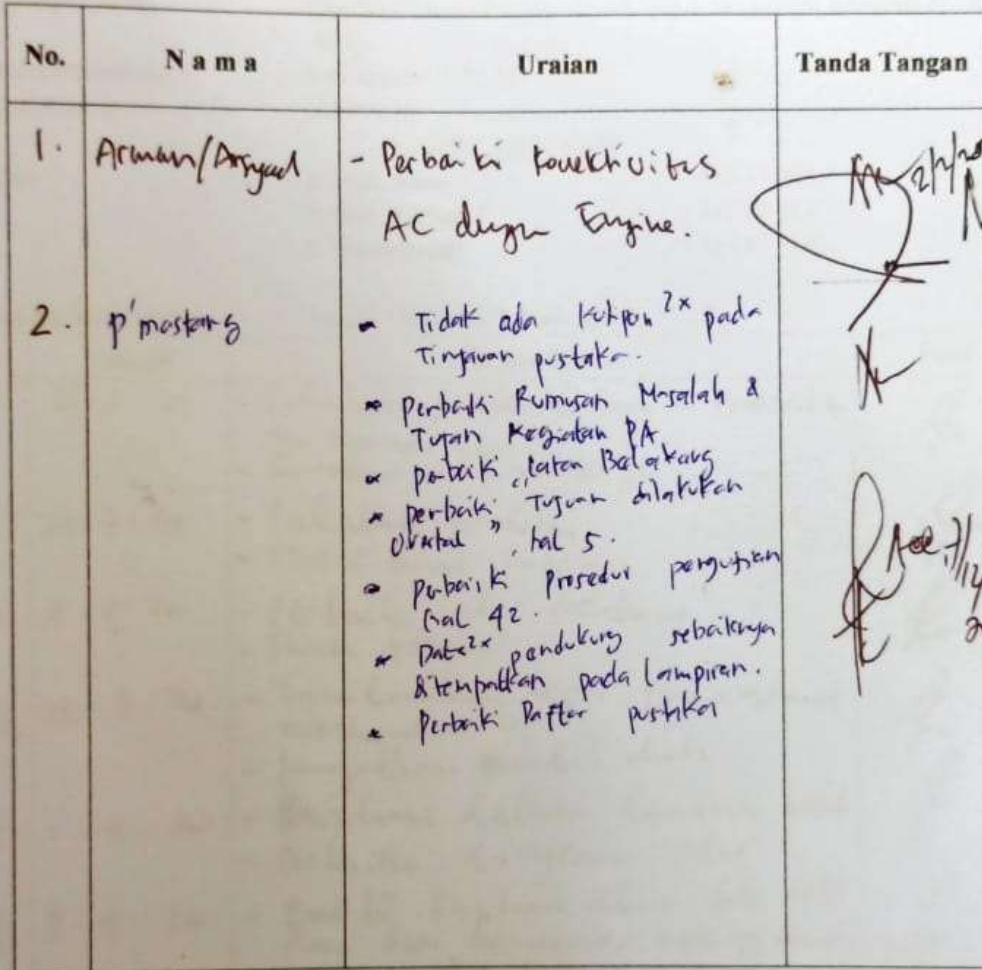 No. Nama Uraian Tanda Tangan
1. Arman/Arsyad - Perbaiki konektivitas
AC dengan Engine.
2. p'mastang - Tidak ada kutipan 2x pada
Tinjauan pustaka.
* perbaiki Rumusan Masalah &
Tujuan Kegiatan PA
* perbaiki Latar Belakang
* perbaiki "Tujuan dilakukan
", hal 5.
* perbaiki prosedur pengujian
hal 42.
* Data2x pendukung sebaiknya
ditempatkan pada lampiran.
* Perbaiki Daftar pustaka